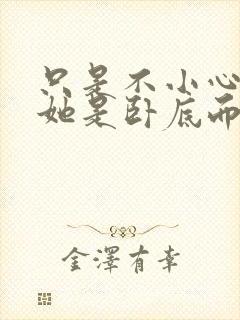 只是不小心
她是卧底而
金澤有幸